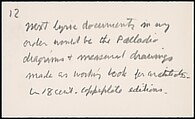 12
Most lyric documents in my
order would be the Palladio
diagrams & measured drawings
made as working book for architects
in 18 cent. copperplate editions.